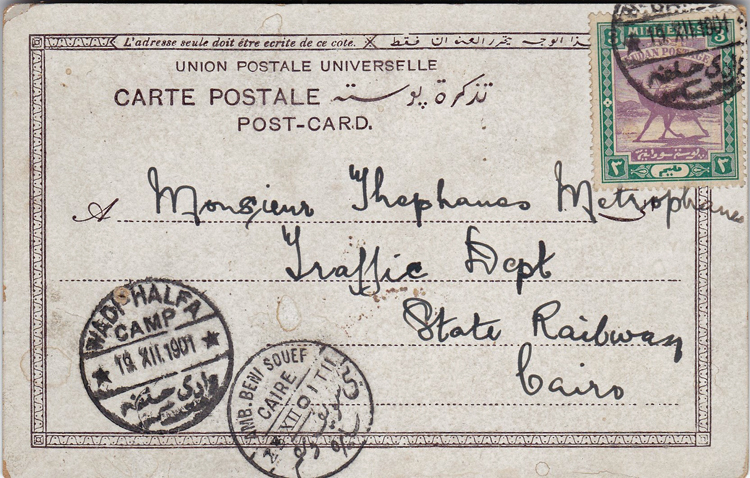 L'adresse seule doit être écrite de ce côté.
فقط
UNION POSTALE UNIVERSELLE
CARTE POSTALE تذكرة پوسته
POST-CARD.
SUDAN POSTAGE
19.XII.1901
A Monsieur Theophanes Metrophanes
Traffic Dept
State Railway
Cairo
WADI HALFA
CAMP
19.XII.1901
AMB. BENI SOUEF
CAIRE
XII 01 T II